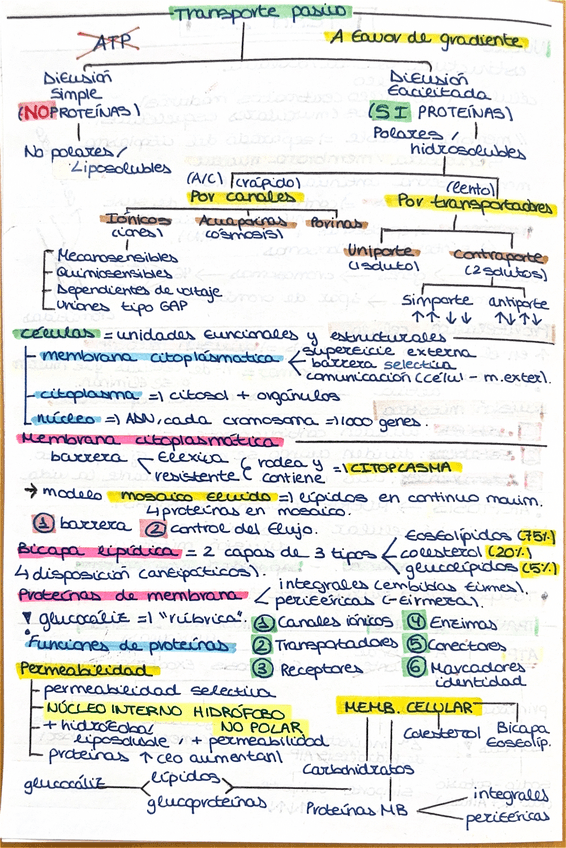 Transporte pasivo
ATP
A favor de gradiente
Difusión Simple
(NO PROTEÍNAS)
No polares / Liposolubles
Difusión Facilitada
(SI PROTEÍNAS)
Polares / hidrosolubles
(A/C) (rápido)
Por canales
(lento)
Por transportadores
Iónicos (iones)
Acuaporinas (ósmosis)
Porinas
Mecanosensibles
Quimiosensibles
Dependientes de voltaje
Uniones tipo GAP
Uniporte (1 soluto)
contraporte (2 solutos)
simporte ↑↑ ↓↓
antiporte ↑↓ ↑↓
Células = unidades funcionales y estructurales
membrana citoplasmática < superficie externa
barrera selectiva
comunicación (célul - m.exter).
citoplasma => citosol + orgánulos
núcleo => ADN, cada cromosoma => 1000 genes.
Membrana citoplasmática
barrera < flexiva
resistente < rodea y contiene => CITOPLASMA
→ modelo mosaico fluido => lípidos en continuo movim.
↳ proteínas en mosaico.
① barrera ② control del flujo.
Bicapa lipídica = 2 capas de 3 tipos < Fosfolípidos (75%)
colesterol (20%)
glucolípidos (5%)
↳ disposición (anfipáticos).
Proteínas de membrana < integrales (embidas firmes).
periféricas (-firmeza).
glucocáliz => "rúbrica".
Funciones de proteínas
① Canales iónicos
② Transportadores
③ Receptores
④ Enzimas
⑤ Conectores
⑥ Marcadores-identidad
Permeabilidad
permeabilidad selectiva
NÚCLEO INTERNO HIDRÓFOBO
NO POLAR
+ hidrófoba / liposoluble, + permeabilidad
proteínas ↑ (lo aumentan)
glucocáliz < lípidos > glucoproteínas
MEMB. CELULAR
Colesterol
Bicapa fosfolip.
Carbohidratos
Proteínas MB < integrales
periféricas